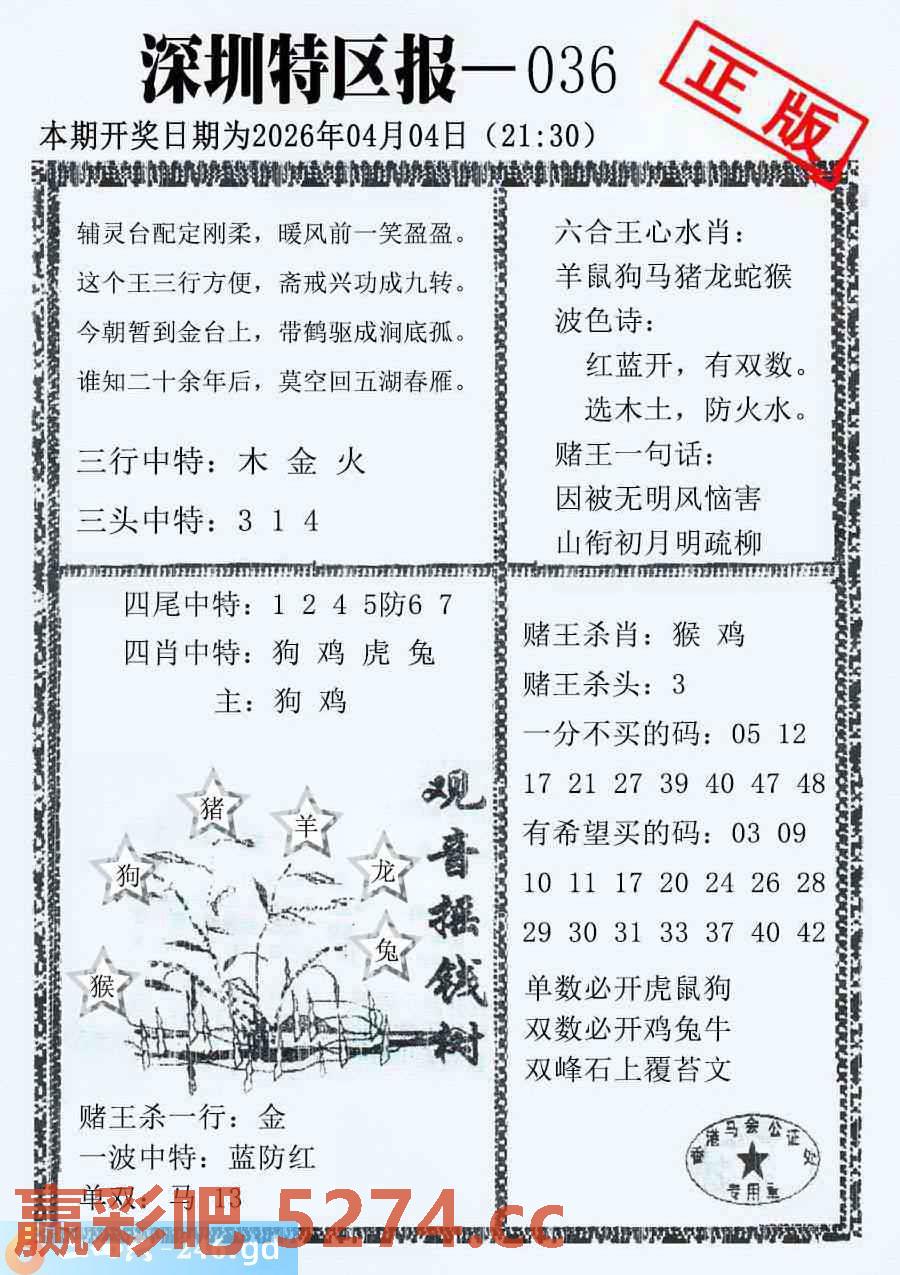 深圳特区报—036
正版
本期开奖日期为2026年04月04日（21:30）
辅灵台配定刚柔，暖风前一笑盈盈。
这个王三行方便，斋戒兴功成九转。
今朝暂到金台上，带鹤驱成涧底孤。
谁知二十余年后，莫空回五湖春雁。
三行中特：木 金 火
三头中特：3 1 4
六合王心水肖：
羊鼠狗马猪龙蛇猴
波色诗：
红蓝开，有双数。
选木土，防火水。
赌王一句话：
因被无明风恼害
山衔初月明疏柳
四尾中特：1 2 4 5防6 7
四肖中特：狗 鸡 虎 兔
主：狗 鸡
观音摇钱树
猪
羊
狗
龙
兔
猴
赌王杀一行：金
一波中特：蓝防红
单双：马 13
赌王杀肖：猴 鸡
赌王杀头：3
一分不买的码：05 12
17 21 27 39 40 47 48
有希望买的码：03 09
10 11 17 20 24 26 28
29 30 31 33 37 40 42
单数必开虎鼠狗
双数必开鸡兔牛
双峰石上覆苔文
香港马会公证处
专用章
赢彩吧 5274.cc